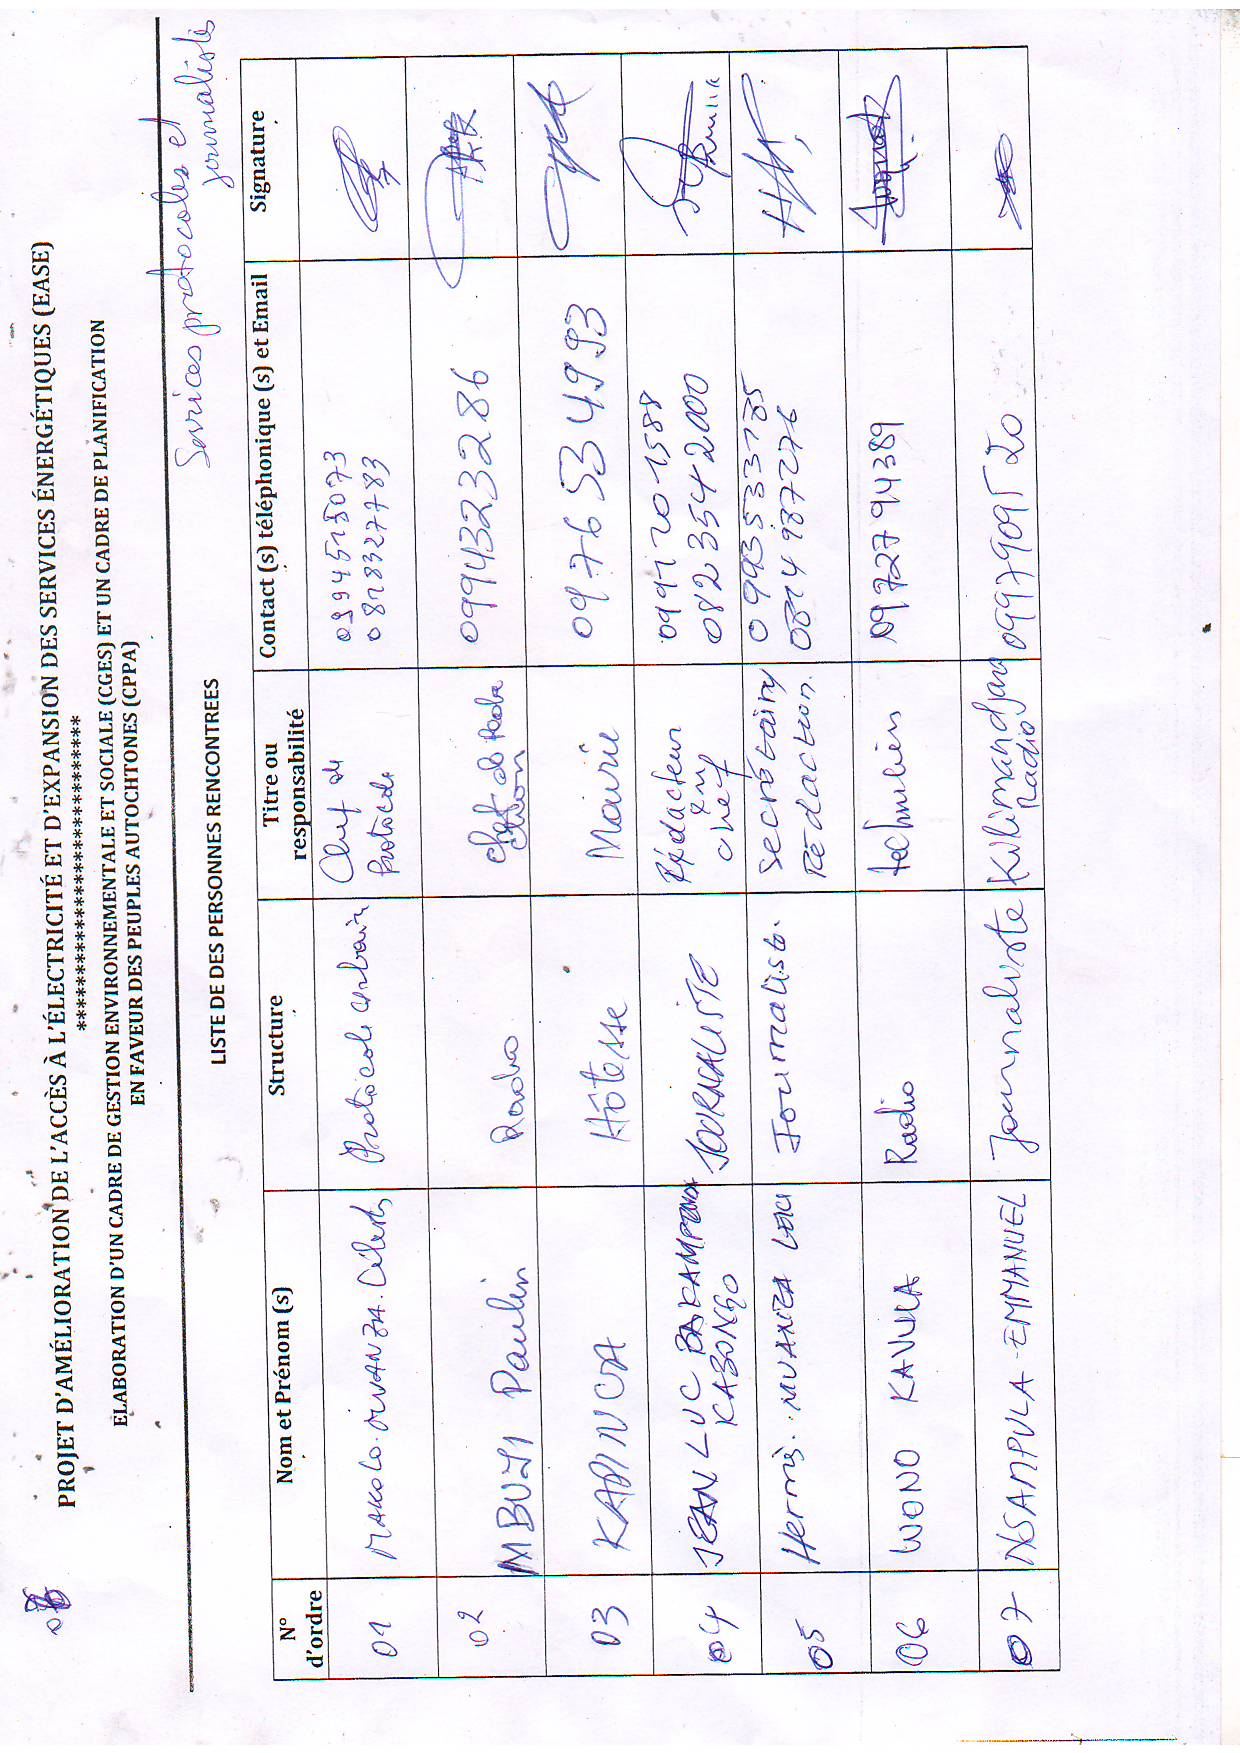 PROJET D'AMÉLIORATION DE L'ACCÈS À L'ÉLECTRICITÉ ET D'EXPANSION DES SERVICES ÉNERGÉTIQUES (EASE)
******************************
ELABORATION D'UN CADRE DE GESTION ENVIRONNEMENTALE ET SOCIALE (CGES) ET UN CADRE DE PLANIFICATION
EN FAVEUR DES PEUPLES AUTOCHTONES (CPPA)
Services protocoles et
journaliste
LISTE DE DES PERSONNES RENCONTREES
N° d'ordre Nom et Prénom (s) Structure Titre ou responsabilité Contact (s) téléphonique (s) et Email Signature
01 MAKOLO. MWANZA. Protocole urbain Chef de Protocole
02 MBUYI Paulin Radio Chef de 0994323286
03 Hôtesse Mairie 0976534993
04 JEAN LUC KABONGO JOURNALISTE Rédacteur en chef 0991701588 0823542000
05 Journaliste. Secrétaire Rédaction.
06 WONO KAVULA Radio technicien 0972794389
07 NSAMPULA-EMMANUEL Journaliste Kilimandjaro Radio